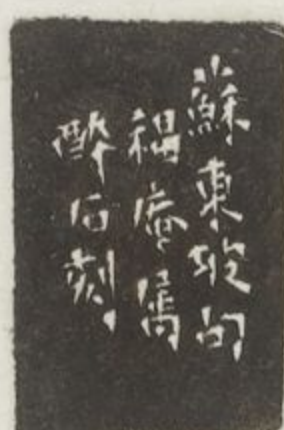 蘇東坡句
褐庵属
醉石刻